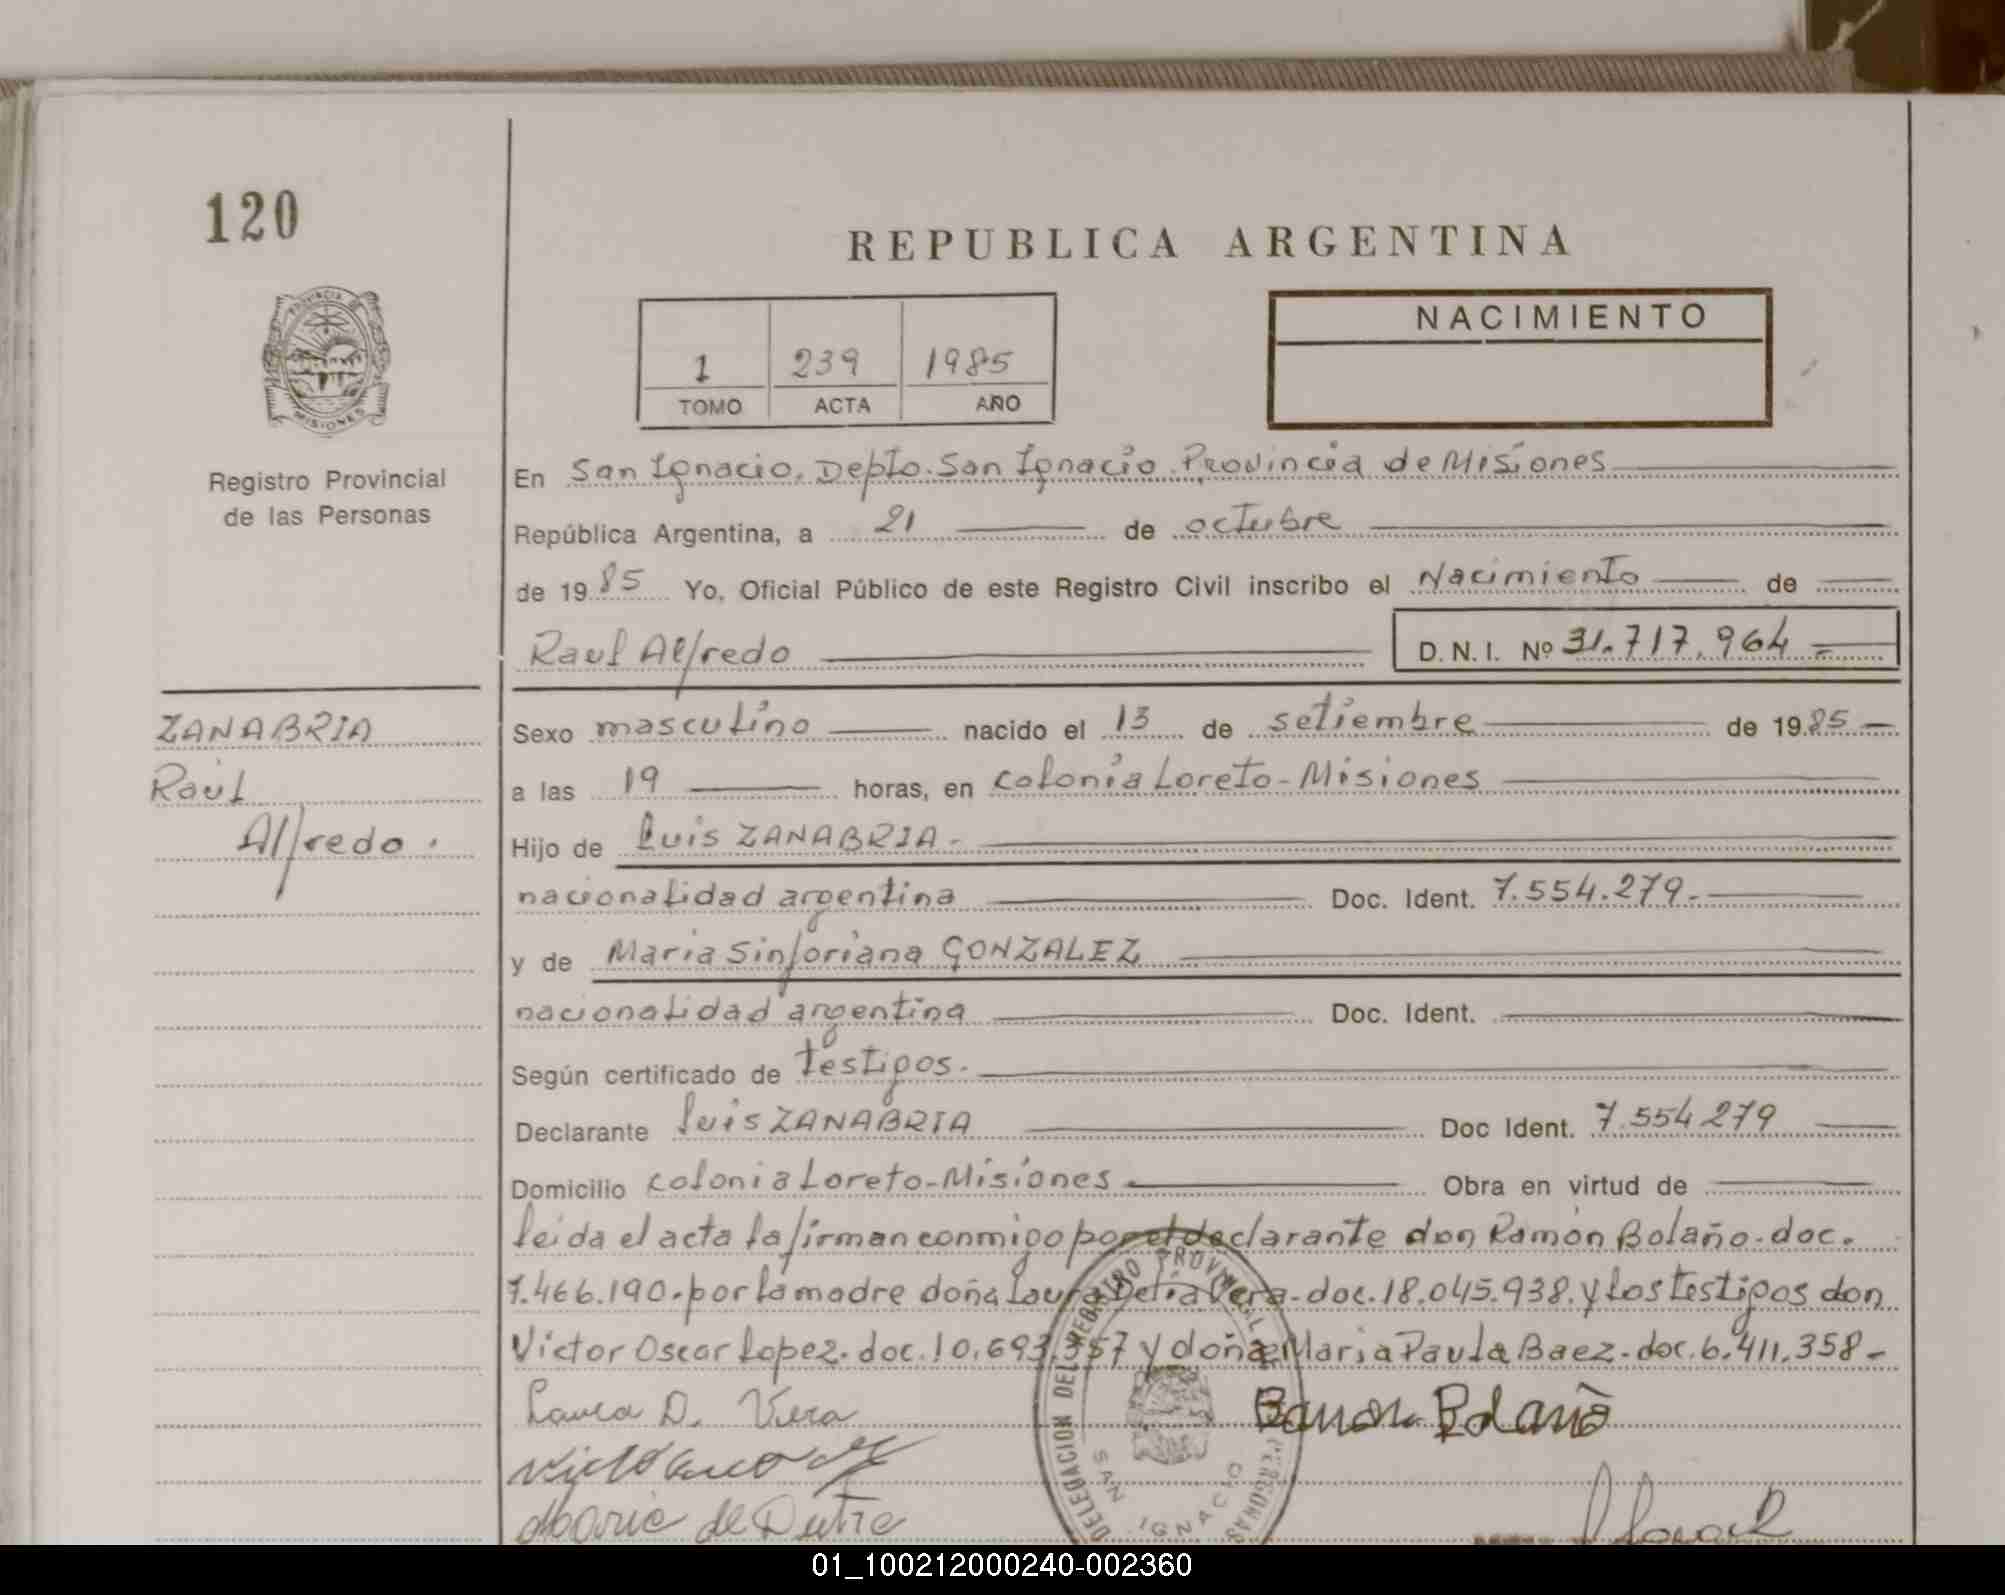 120
REPUBLICA ARGENTINA
NACIMIENTO
1 239 1985
TOMO ACTA AÑO
PROVINCIA DE
MISIONES
Registro Provincial
de las Personas
En San Ignacio, Depto. San Ignacio Provincia de Misiones
República Argentina, a 21 de octubre
de 1985 Yo, Oficial Público de este Registro Civil inscribo el Nacimiento de
Raul Alfredo D.N.I. Nº 31.717.964
ZANABRIA
Raúl
Alfredo.
Sexo masculino nacido el 13 de setiembre de 1985
a las 19 horas, en Colonia Loreto-Misiones
Hijo de Luis ZANABRIA.
nacionalidad argentina Doc. Ident. 7.554.279.
y de Maria Sinforiana GONZALEZ
nacionalidad argentina Doc. Ident.
Según certificado de testigos.
Declarante Luis ZANABRIA Doc Ident. 7.554279
Domicilio Colonia Loreto-Misiones Obra en virtud de
leida el acta la firman conmigo por el declarante don Ramón Bolaño. doc.
7.466.190. por la madre doña Laura Delia Vera. doc. 18.045.938. y los testigos don
Victor Oscar Lopez. doc. 10.693.357 y doña Maria Paula Baez. doc. 6.411.358-
Laura D. Vera
Ramon Bolaño
DELEGACION DEL REGISTRO PROVINCIAL PERSONAS
SAN IGNACIO
01_100212000240-002360